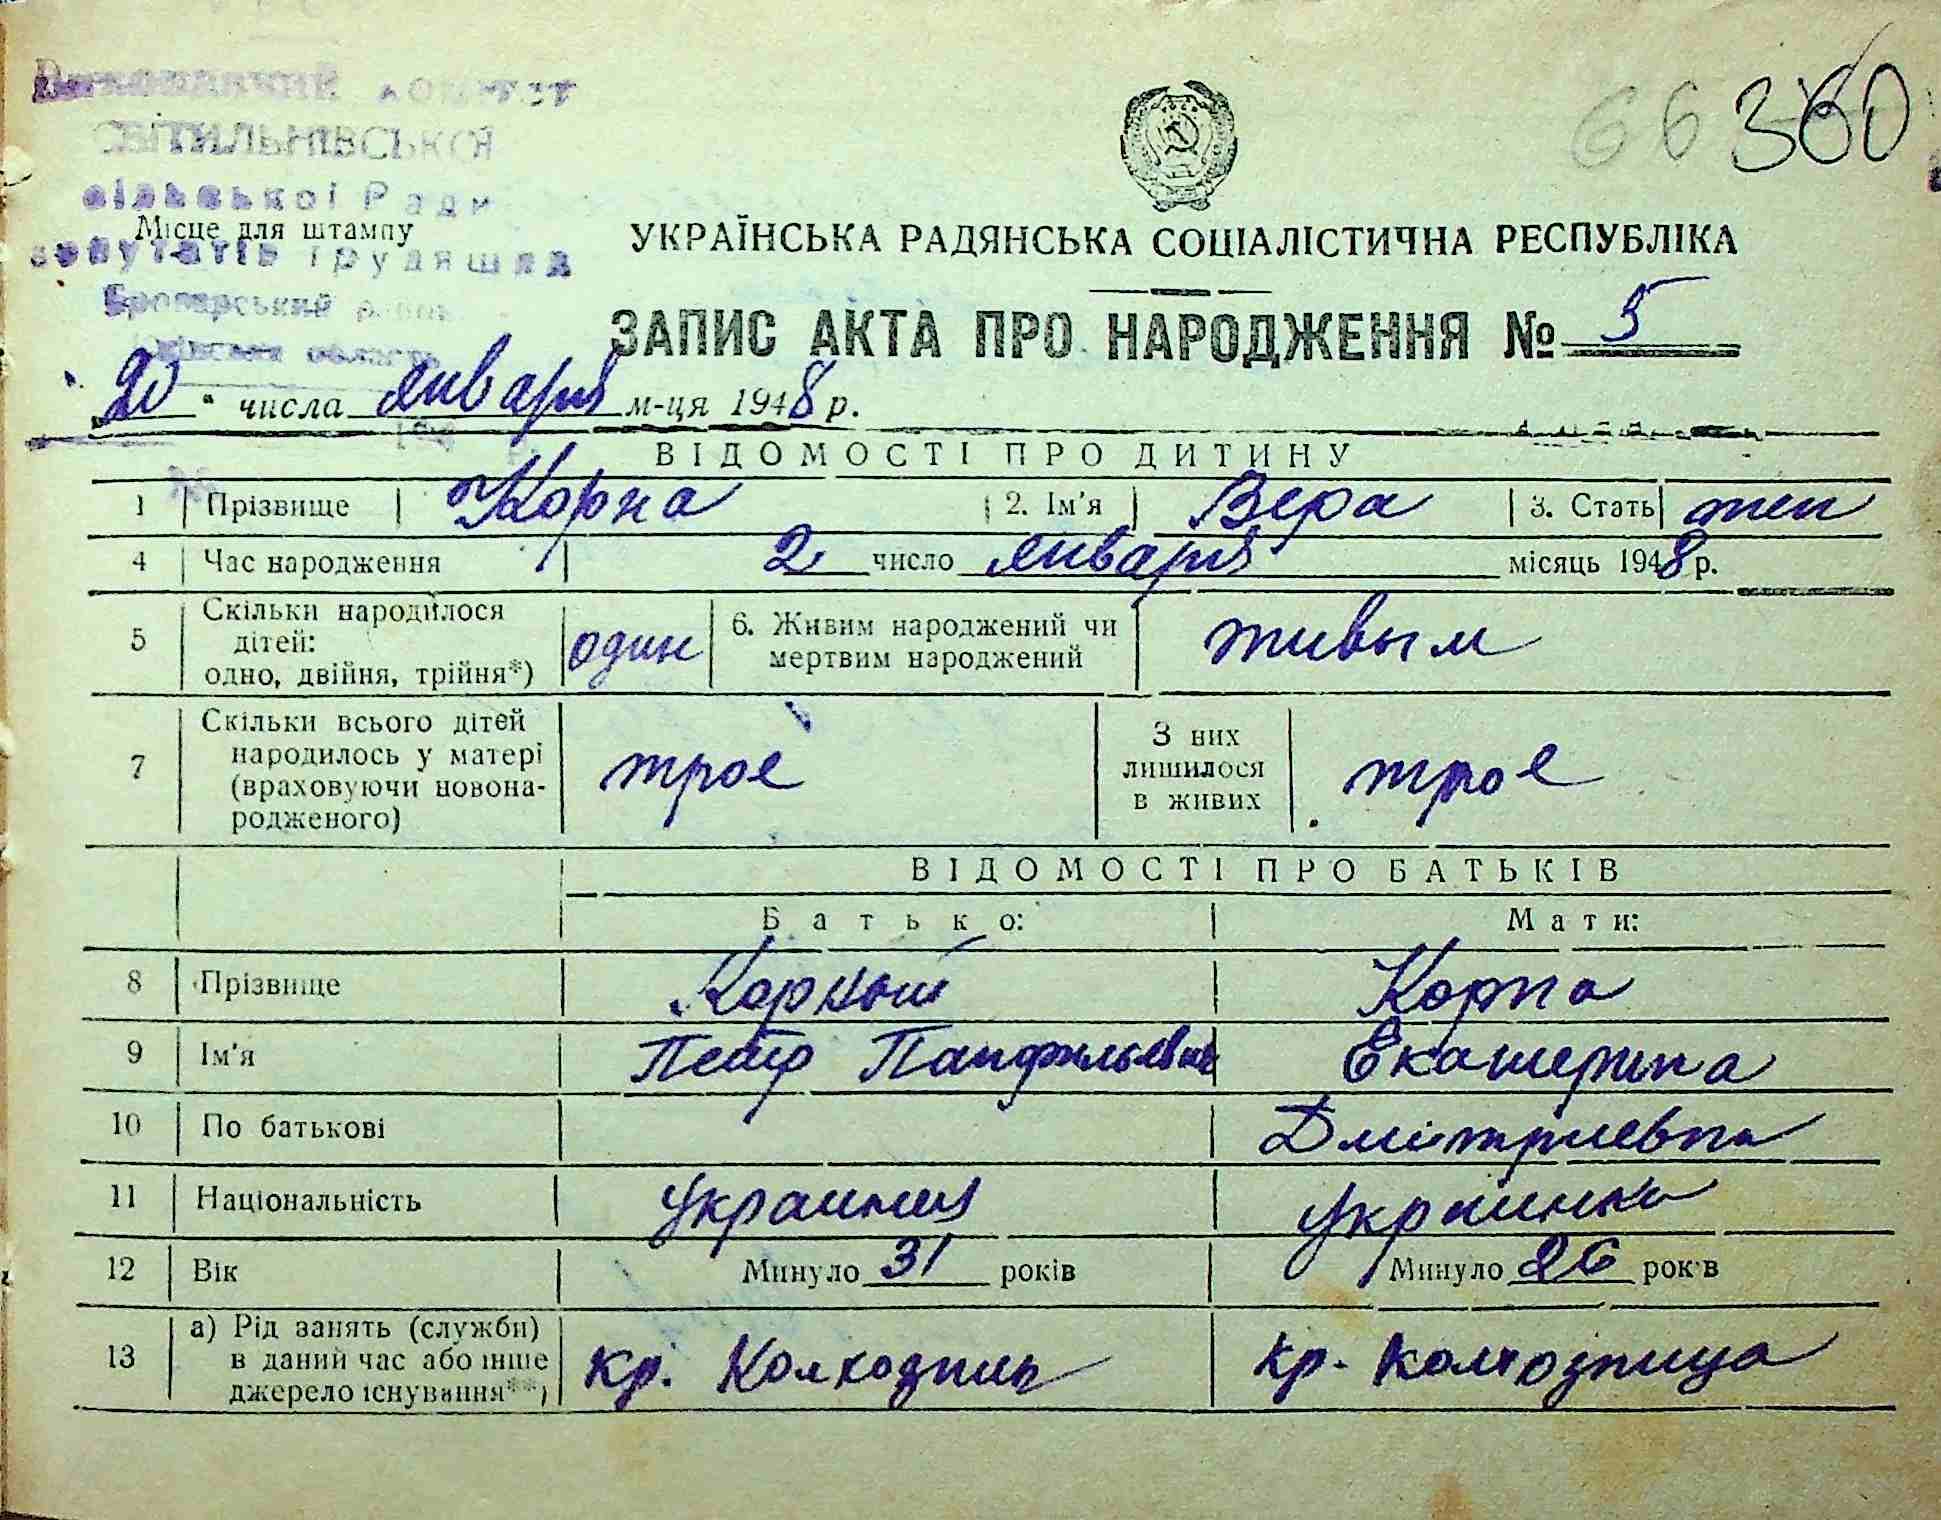 Виконавчий комітет
СВІТИЛЬНІВСЬКОЇ
сільської Ради
Місце для штампу
депутатів трудящих
Броварський район
Київська область
66 360
УКРАЇНСЬКА РАДЯНСЬКА СОЦІАЛІСТИЧНА РЕСПУБЛІКА
ЗАПИС АКТА ПРО НАРОДЖЕННЯ № 5
20 " числа января м-ця 1948 р.
ВІДОМОСТІ ПРО ДИТИНУ
1 Прізвище Корна 2. Ім'я Вера 3. Стать жен
4 Час народження 2 число января місяць 1948 р.
5 Скільки народилося дітей: одно, двійня, трійня*) один 6. Живим народжений чи мертвим народжений живым
7 Скільки всього дітей народилось у матері (враховуючи новонародженого) трое З них лишилося в живих трое
ВІДОМОСТІ ПРО БАТЬКІВ
Батько: Мати:
8 Прізвище Корный Корна
9 Ім'я Петр Панфильевич Екатерина
10 По батькові Дмітриевна
11 Національність украинец украинка
12 Вік Минуло 31 років Минуло 26 років
13 а) Рід занять (служби) в даний час або інше джерело існування**) кр. Колхозник кр. колхозница